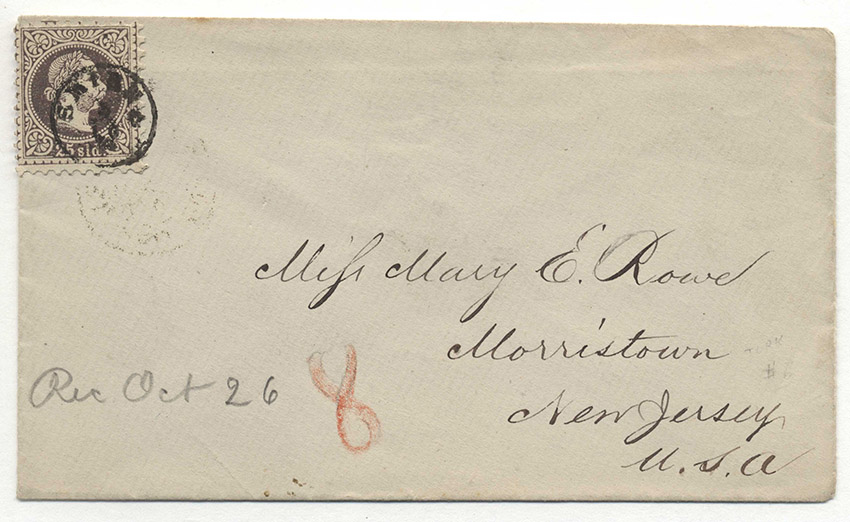 25 sld
Miss Mary E. Rowe
Morristown
New Jersey
U.S.A
Rec Oct 26
8